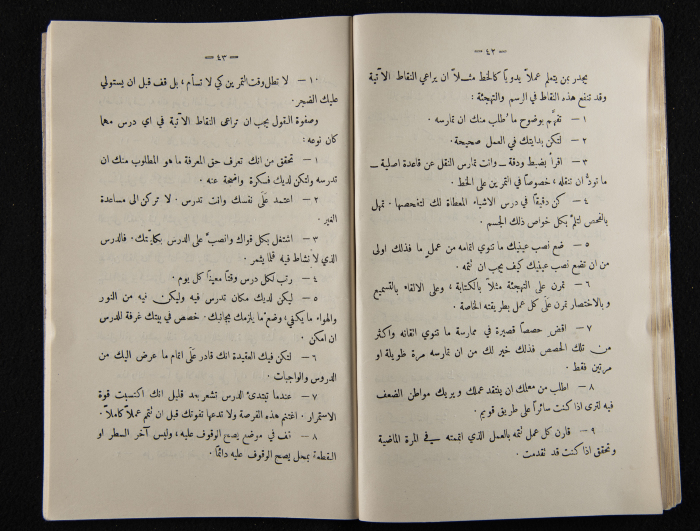 — ٤٢ —
يجدر بمن يتعلم عملاً يدويّا كالخط مثلاً ان يراعي النقاط الآتية
وقد تنفع هذه النقاط في الرسم والتهجئة :
١ — تفهَّم بوضوح ما طُلب منك ان تمارسه .
٢ — لتكن بدايتك في العمل صحيحة .
٣ — اقرأ بضبط ودقة — وانت تمارس النقل عن قاعدة اصلية —
ما تودُّ ان تنقله ، خصوصاً في التمرين على الخط .
٤ — كن دقيقاً في درس الاشياء المعطاة لك لتفحصها . تمهل
بالفحص لتلمَّ بكل خواص ذلك الجسم .
٥ — ضع نصب عينيك ما تنوي اتمامه من عمل ما فذلك اولى
من ان تضع نصب عينيك كيف يجب ان تتمه .
٦ — تمرن على التهجئة مثلاً بالكتابة ، وعلى الالقاء بالتسميع
وبالاختصار تمرن على كل عمل بطريقته الخاصة .
٧ — اقضِ حصصاً قصيرة في ممارسة ما تنوي اتقانه واكثر
من تلك الحصص فذلك خير لك من ان تمارسه مرة طويلة او
مرتين فقط .
٨ — اطلب من معلمك ان ينتقد عملك ويريك مواطن الضعف
فيه لترى اذا كنت سائراً على طريق قويم .
٩ — قارن كل عمل تتمه بالعمل الذي اتممته في المرة الماضية
وتحقق اذا كنت قد تقدمت .
— ٤٣ —
١٠ — لا تطل وقت التمرين كي لا تسأم ، بل قف قبل ان يستولي
عليك الضجر .
وصفوة القول يجب ان تراعى النقاط الآتية في اي درس مهما
كان نوعه :
١ — تحقق من انك تعرف حق المعرفة ما هو المطلوب منك ان
تدرسه ولتكن لديك فكرة واضحة عنه .
٢ — اعتمد على نفسك وانت تدرس . لا تركن الى مساعدة
الغير .
٣ — اشتغل بكل قواك وانصبَّ على الدرس بكليتك . فالدرس
الذي لا نشاط فيه قلما يثمر .
٤ — رتب لكل درس وقتاً معيناً كل يوم .
٥ — ليكن لديك مكان تدرس فيه وليكن فيه من النور
والهواء ما يكفي ، وضع ما يلزمك بجانبك . خصص في بيتك غرفة للدرس
ان امكن .
٦ — لتكن فيك العقيدة انك قادر على اتمام ما عرض اليك من
الدروس والواجبات .
٧ — عندما تبتدئ الدرس تشعر بعد قليل انك اكتسبت قوة
الاستمرار . اغتنم هذه الفرصة ولا تدعها تفوتك قبل ان تتم عملاً كاملاً .
٨ — قف في موضع يصح الوقوف عليه ، وليس آخر السطر او
القطعة بمحل يصح الوقوف عليه دائماً .